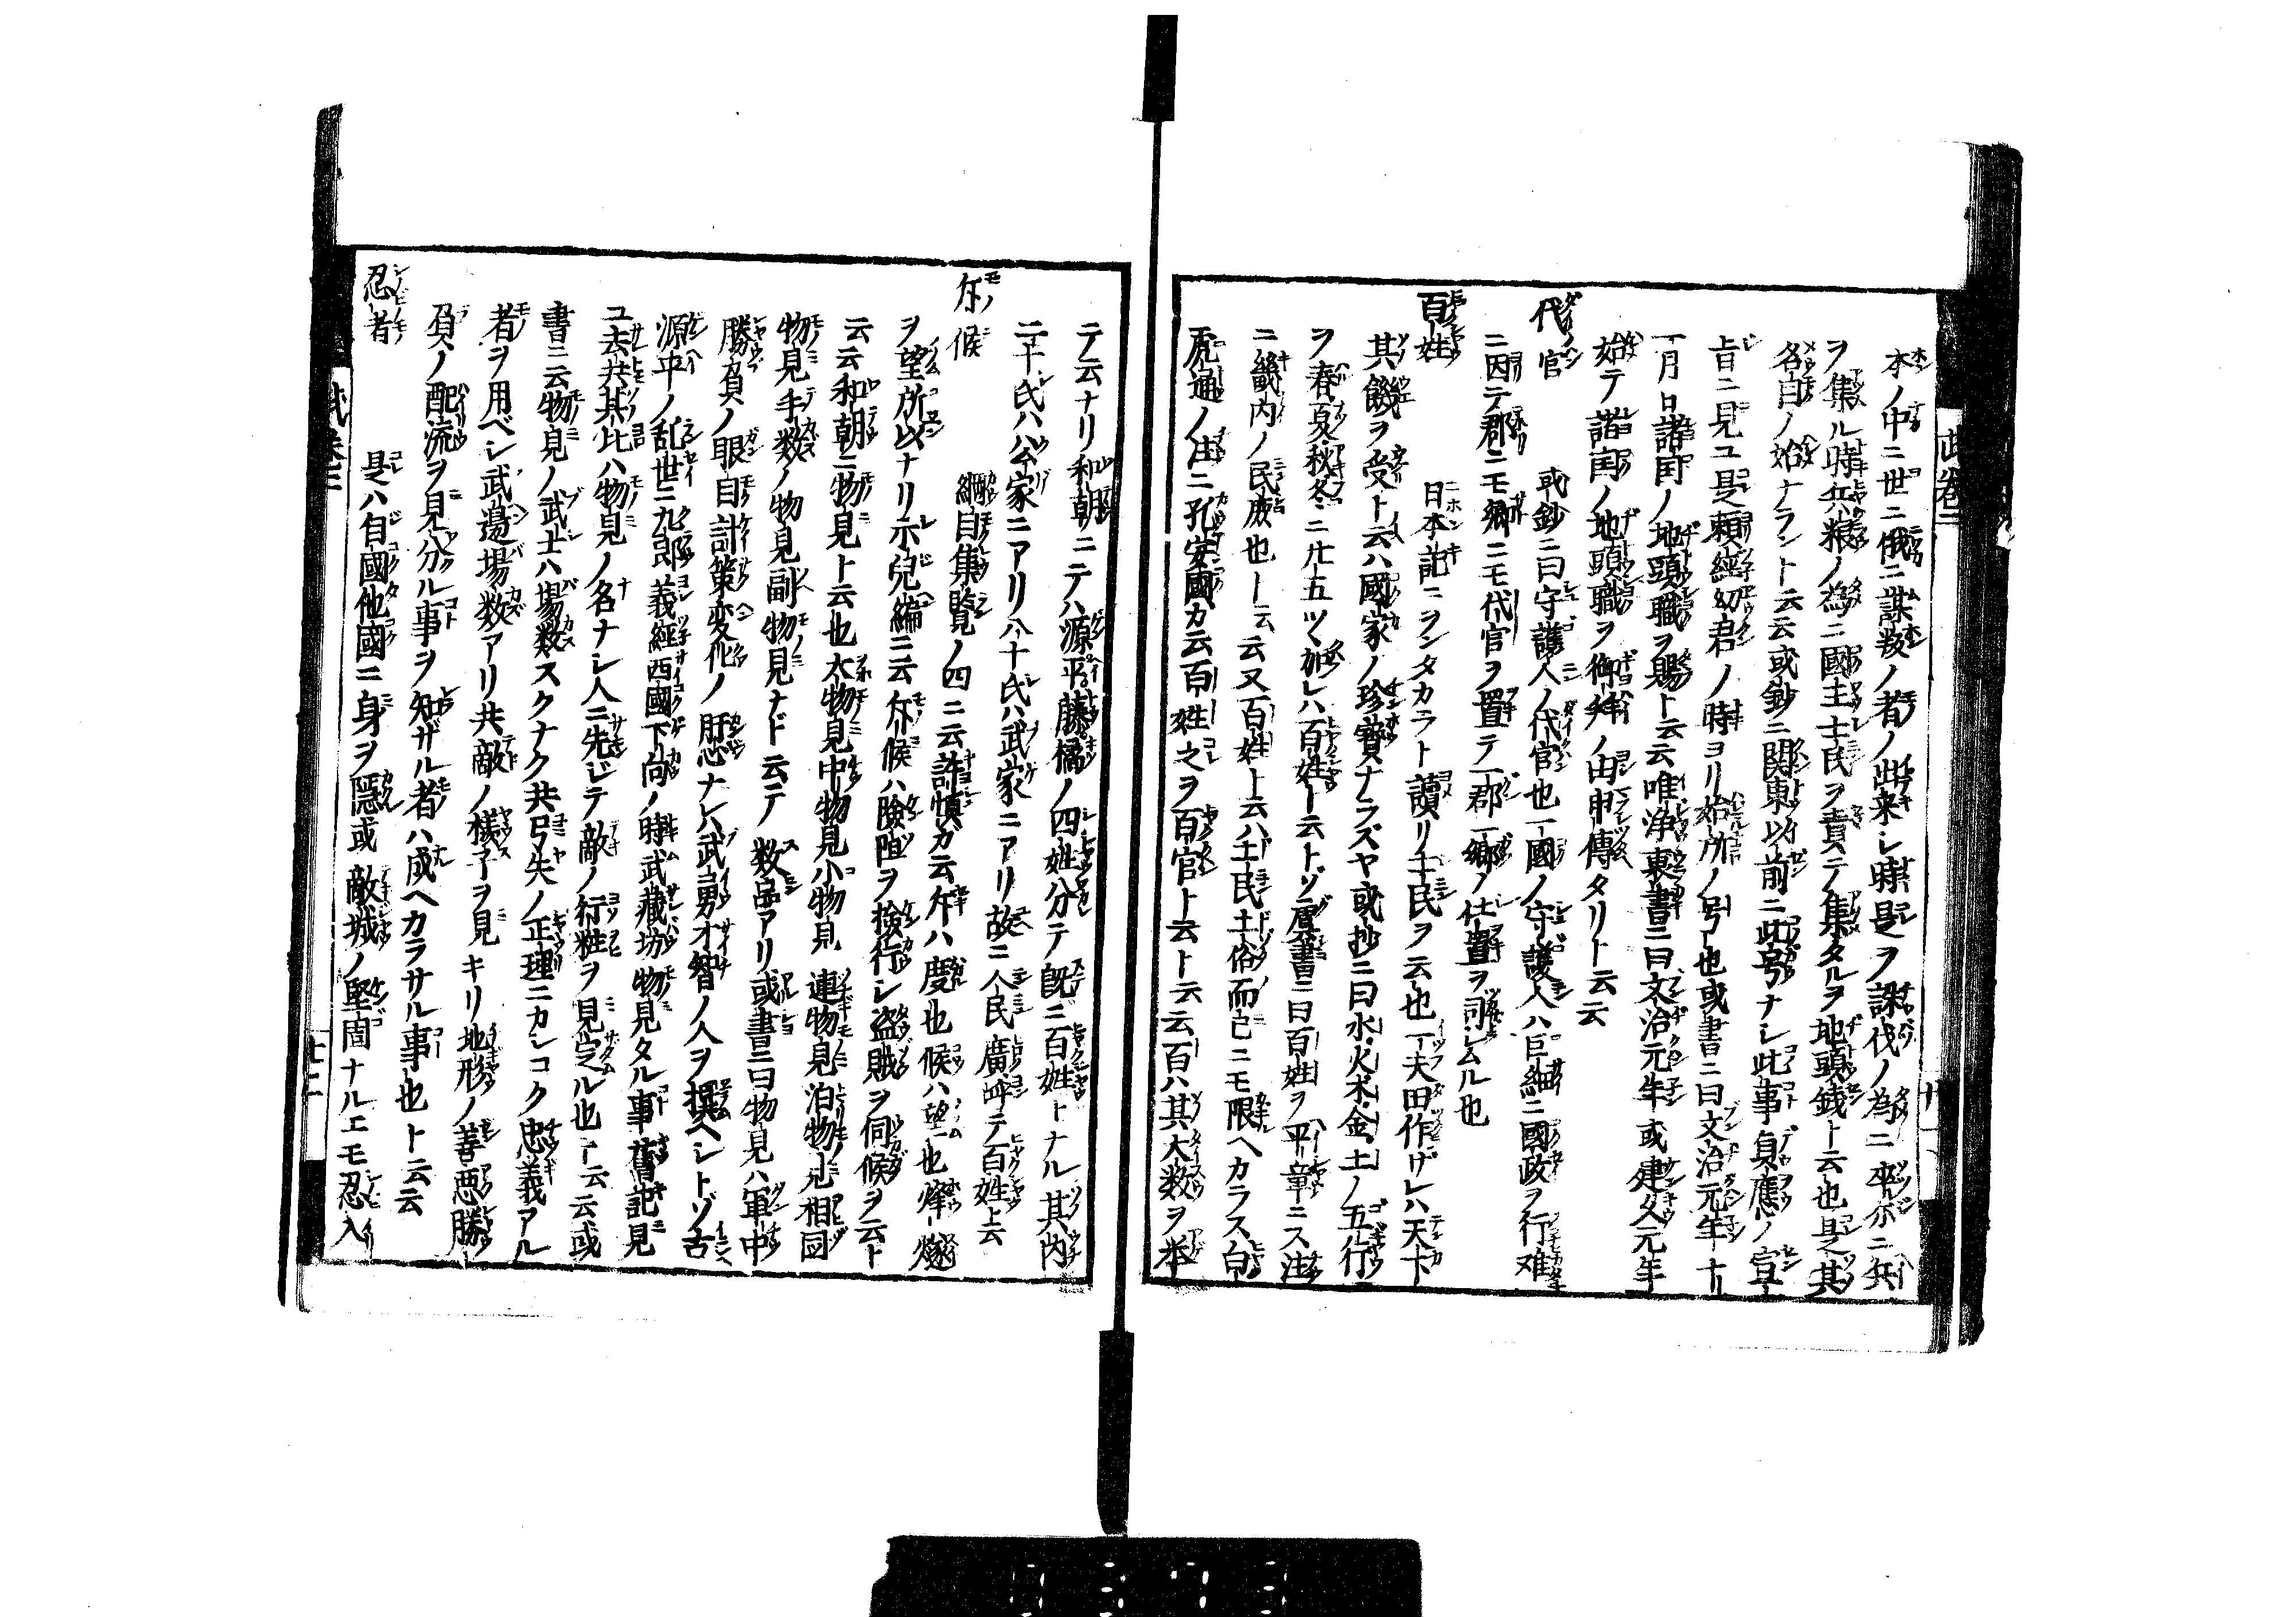 本ノ中ニ世ニ俄ニ謀叛ノ者ノ出来シ時是ヲ誅伐ノ為ニ卒尓ニ兵
ヲ集ル時兵粮ノ為ニ國主士民ヲ責テ集タルヲ地頭銭ト云也是其
名目ノ始ナラント云云或鈔ニ関東以前ニ此号ナシ此事貞應ノ宣
旨ニ見ユ是頼經幼君ノ時ヨリ始所ノ号也或書ニ曰文治元年十
一月日諸国ノ地頭職ヲ賜ト云云唯浄裏書ニ曰文治元年或建久元年
始テ諸国ノ地頭職ヲ御拝ノ由申傳タリト云云
代官 或鈔ニ曰守護人ノ代官也一國ノ守護人ハ巨細ニ國政ヲ行难
ニ因テ郡ニモ郷ニモ代官ヲ置テ一郡一郷ノ仕置ヲ司シムル也
百姓 日本記ニヲンタカラト讀リ土民ヲ云也一夫田作ザレハ天下
其饑ヲ受ト云ハ國家ノ珍寶ナラズヤ或抄ニ曰水火木金土ノ五行
ヲ春夏秋冬ニ廿五ツヽ加レハ百姓ト云トゾ虞書ニ曰百姓ヲ平章ニス注
ニ畿内ノ民庶也ト云云又百姓ト云ハ土民土俗而已ニモ限ヘカラス白
虎通ノ注ニ孔安國カ云百姓之ヲ百官ト云ト云云百ハ其大数ヲ挙
テ云ナリ和朝ニテハ源平藤橘ノ四姓分テ既ニ百姓トナル其内
二十氏ハ公家ニアリ八十氏ハ武家ニアリ故ニ人民廣呼テ百姓ト云
斥候 綱目集覽ノ四ニ云許慎カ云斥ハ度也候ハ望也烽燧
ヲ望所以ナリ示兒編ニ云斥候ハ險阻ヲ撿行シ盗賊ヲ伺候ヲ云ト
云云和朝ニ物見ト云也大物見中物見小物見連物見泊物見相図
物見手数ノ物見副物見ナド云テ数品アリ或書ニ曰物見ハ軍中
勝負ノ眼目計策変化ノ肝心ナレハ武勇才智ノ人ヲ撰ヘシトゾ古
源平ノ乱世ニ九郎義經西國下向ノ時武藏坊物見タル事舊記見
ユ去共其比ハ物見ノ名ナシ人ニ先ジテ敵ノ行粧ヲ見定ル也ト云云或
書ニ云物見ノ武士ハ場数スクナク共弓矢ノ正理ニカシコク忠義アル
者ヲ用ベシ武邊場数アリ共敵ノ様子ヲ見キリ地形ノ善悪勝
負ノ配流ヲ見分ル事ヲ知ザル者ハ成ヘカラサル事也ト云云
忍者 是ハ自國他國ニ身ヲ隱或敵城ノ堅固ナルエモ忍入